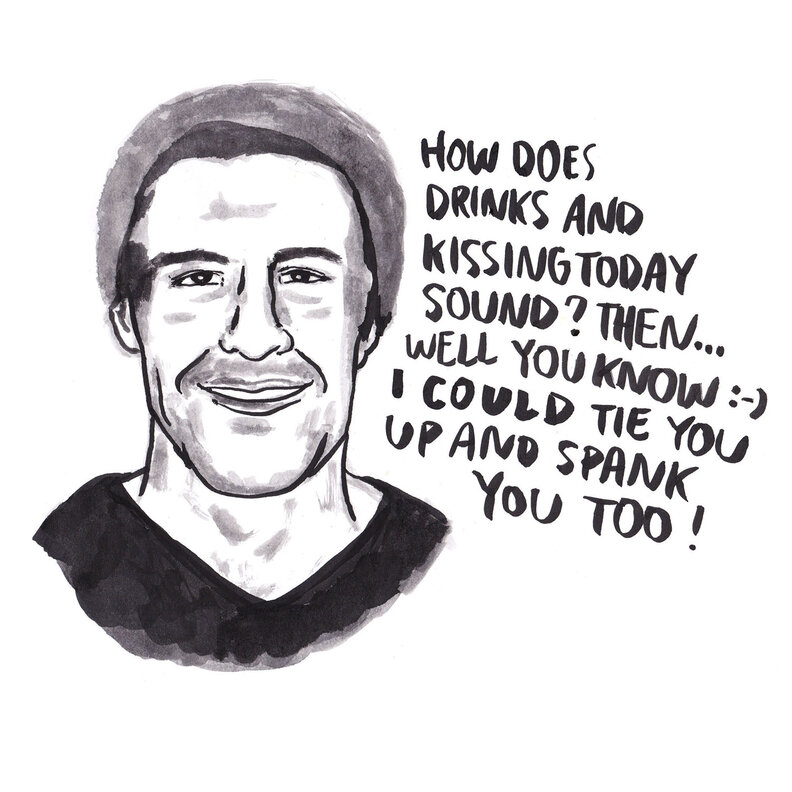 HOW DOES
DRINKS AND
KISSING TODAY
SOUND? THEN...
WELL YOU KNOW :-)
I COULD TIE YOU
UP AND SPANK
YOU TOO!